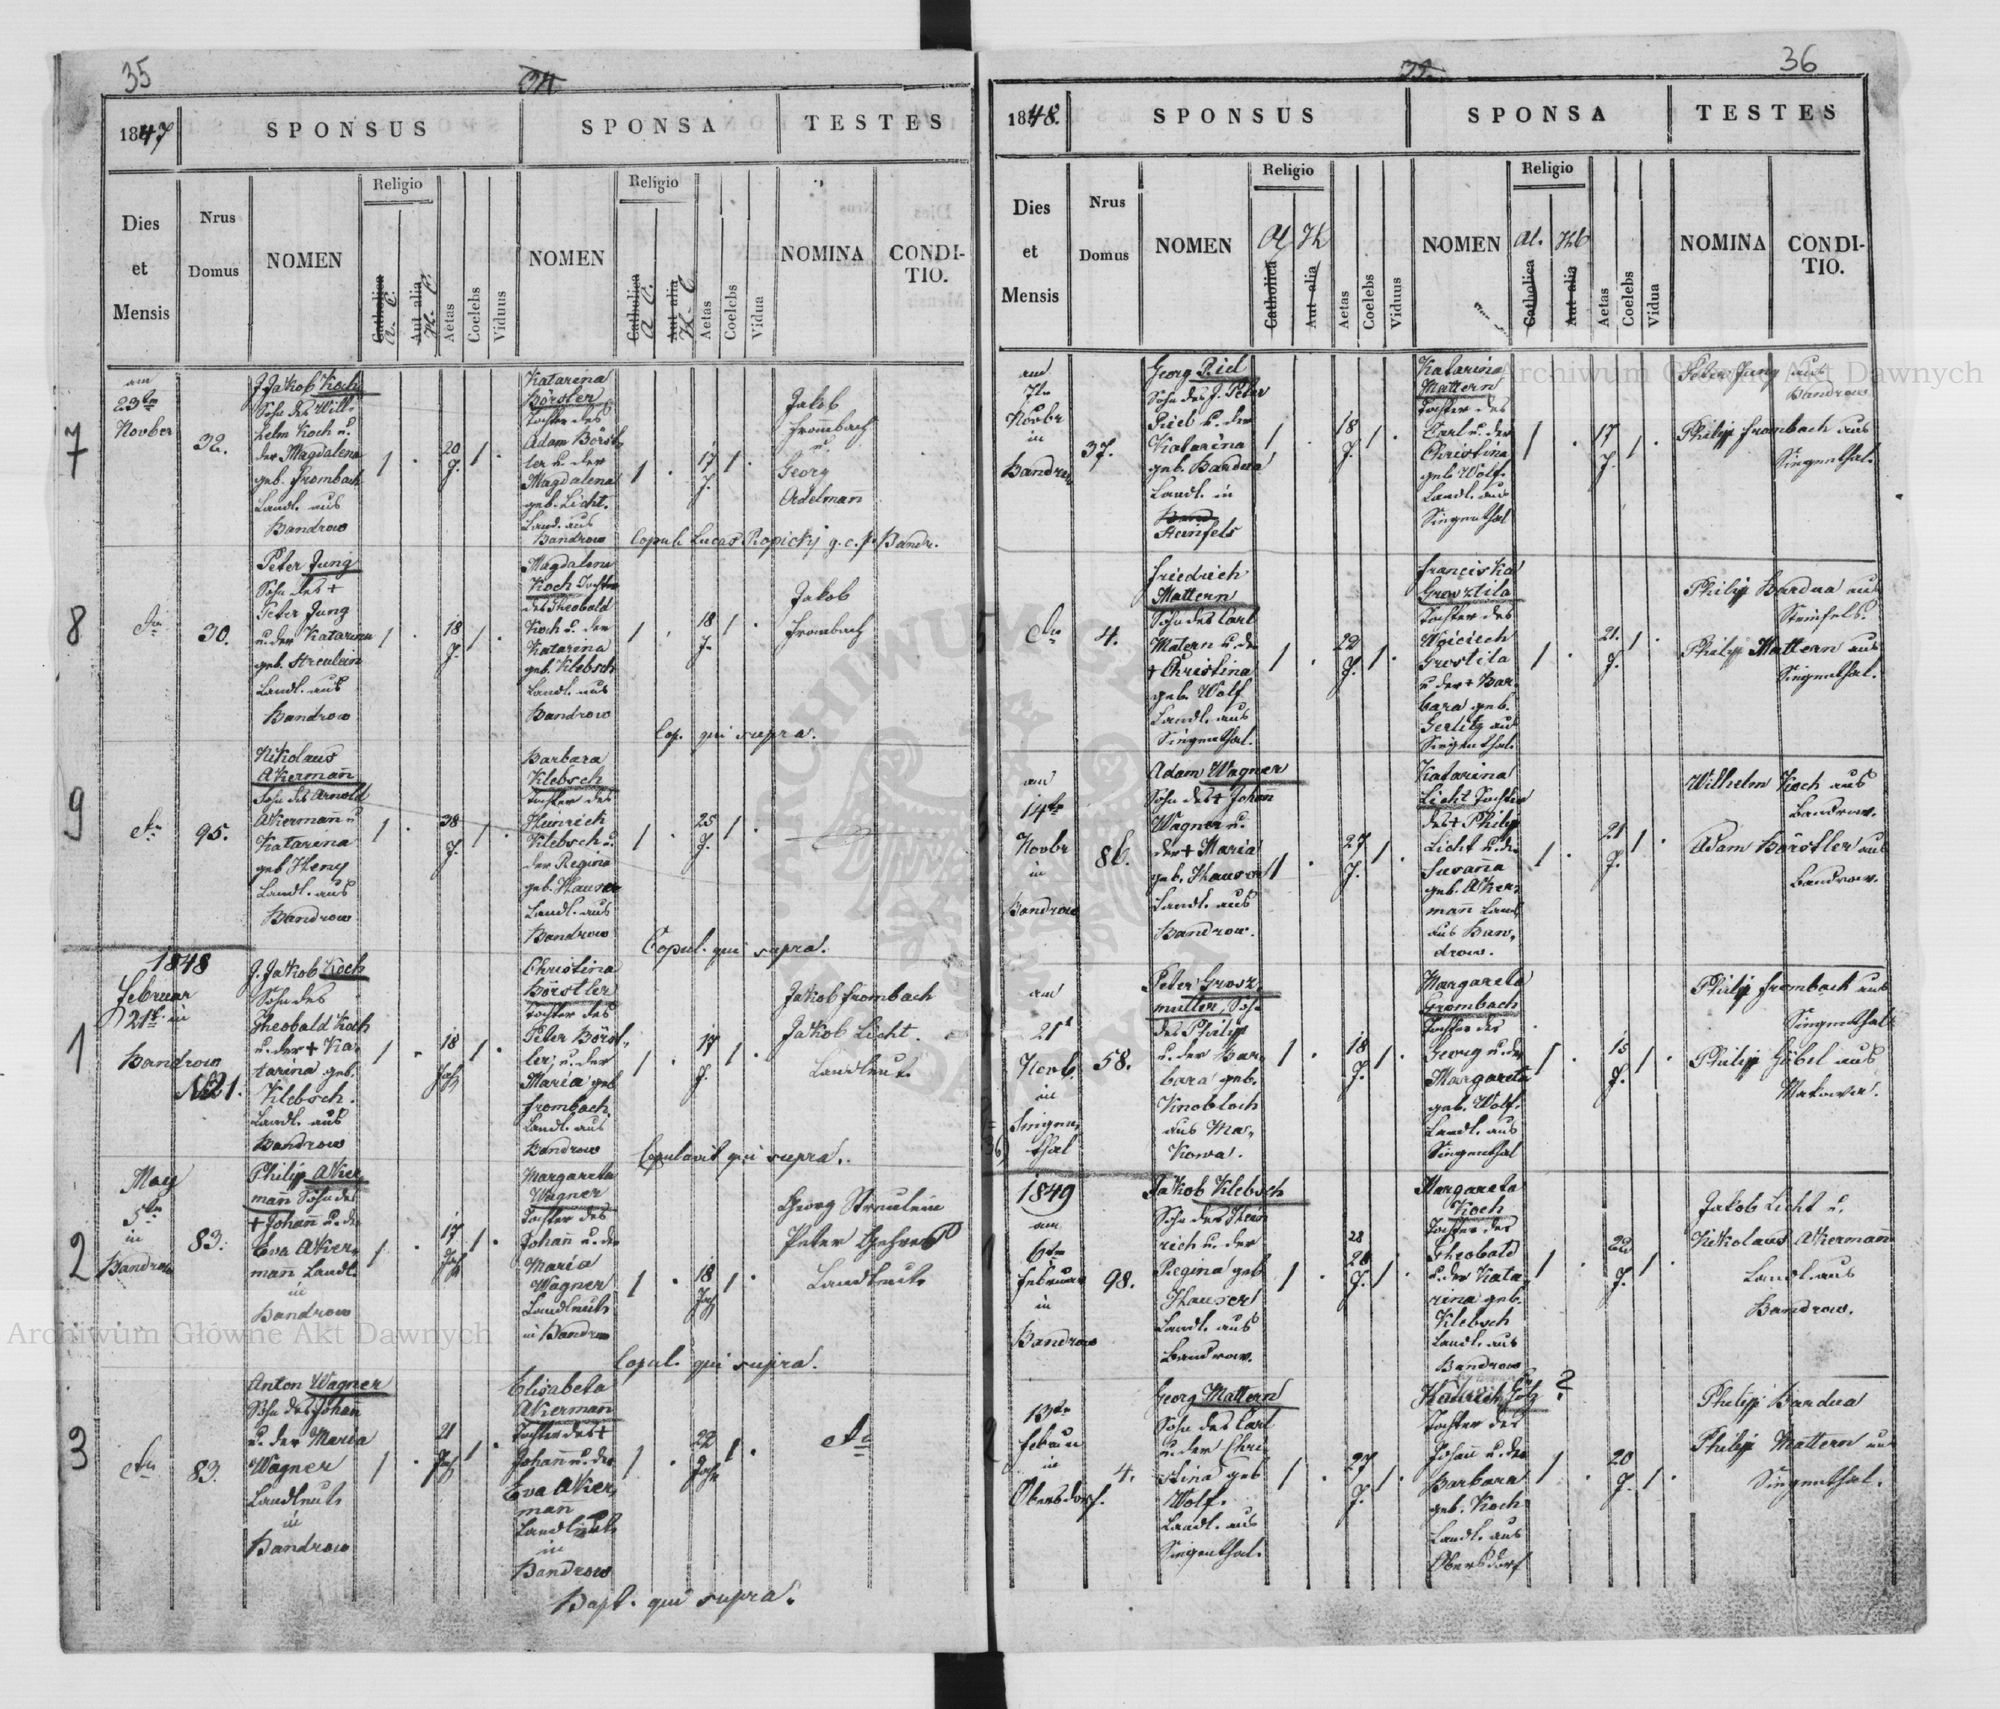 35
34
1847
SPONSUS
SPONSA
TESTES
Dies
et
Mensis
Nrus
Domus
NOMEN
Religio
Catholica
A. C.
Aut alia
H. C.
Aetas
Coelebs
Viduus
NOMEN
Religio
Catholica
A. C.
Aut alia
H. C.
Aetas
Coelebs
Vidua
NOMINA
CONDI-
TIO.
7
am
23ten
Novber
32.
J. Jakob Koch
Sohn des Wil-
helm Koch u.
der Magdalena
geb. Frombach
Landl. aus
Bandrow
1
20
J.
1
Katarena
Börstler
Tochter des
Adam Börst-
ler u. der
Magdalena
geb. Licht.
Land. aus
Bandrow
1
17
J.
1
Jakob
Frombach
u.
Georg
Adelmann
Copul. Lucas Ropicky g. c. p. Bandr.
8
30.
Peter Jung
Sohn des +
Peter Jung
u. der Katarina
geb. Streulein
Landl. aus
Bandrow
1
18
J.
1
Magdalena
Koch Tochter
des Theobald
Koch u. der
Katarina
geb. Klebsch
Landl. aus
Bandrow
1
18
J.
1
Jakob
Frombach
Cop. qui supra.
9
95.
Nikolaus
Akermann
Sohn des Arnold
Akerman u
Katarina
geb Heny
Landl. aus
Bandrow
1
38
J.
1
Barbara
Klebsch
Tochter des
Heinrich
Klebsch u.
der Regina
geb. Hauser
Landl. aus
Bandrow
1
25
J.
1
Copul. qui supra.
1848
1
Februar
21t in
Bandrow
N21.
J. Jakob Koch
Sohn des
Theobald Koch
u. der + Ka-
tarina geb.
Klebsch.
Landl. aus
Bandrow
1
18
Jah
1
Christina
Börstler
Tochter des
Peter Börst-
ler, u. der
Maria geb
Frombach
Landl. aus
Bandrow
1
17
J.
1
Jakob Frombach
Jakob Licht.
Landleute
Copulavit qui supra.
2
May
5ten
in
Bandrow
83.
Philip Aker-
mann Sohn des
+ Johann u. der
Eva Aker-
mann Landl.
in
Bandrow
1
17
Jah
1
Margareta
Wagner
Tochter des
Johann u. der
Maria
Wagner
Landleute
in Bandrow
1
18
Jah
1
Georg Streulein
Peter Gehres
Landleute
Copul. qui supra.
3
83.
Anton Wagner
Sohn des Johann
u. der Maria
Wagner
Landleute
in
Bandrow
1
21
Jah
1
Elisabeta
Akerman
Tochter des +
Johann u. der
Eva Aker-
man
Landleute
in
Bandrow
1
22
Jah
1
Bapt. qui supra.
36
1848.
SPONSUS
SPONSA
TESTES
Dies
et
Mensis
Nrus
Domus
NOMEN
Religio
Catholica
Aut alia
Aetas
Coelebs
Viduus
NOMEN
Religio
Catholica
Aut alia
Aetas
Coelebs
Vidua
NOMINA
CONDI-
TIO.
am
7te
Novbr
in
Bandrow
37.
Georg Piel
Sohn des J. Peter
u. der
Katarina
geb. Bardua
Landl. in
Steinfels
1
18
J.
1
Katarina
Mattern
Tochter des
Carl u. der
Christina
geb. Wolf.
Landl. aus
Singenthal
1
17
J.
1
Peter Jung aus
Bandrow
Philip Frombach aus
Singenthal.
4.
Friedrich
Mattern
Sohn des Carl
Matern u. der
+ Christina
geb. Wolf
Landl. aus
Singenthal.
1
22
J.
1
Franciska
Growztila
Tochter des
Woiciech
Grostila
u der + Bar-
bara geb.
Gerlitz aus
Singenthal.
1
21.
J.
1
Philip Bardua aus
Steinfels.
Philip Mattern aus
Singenthal.
am
14te
Novbr
in
Bandrow
86.
Adam Wagner
Sohn des + Johann
Wagner u.
der + Maria
geb. Hauser
Landl. aus
Bandrow.
1
27
J.
1
Katarina
Licht Tochter
des + Philip
Licht u. der
Susanna
geb. Aker-
mann Land
aus Ban-
drow.
1
21
J.
1
Wilhelm Koch aus
Bandrow.
Adam Börstler aus
Bandrow.
am
21t
Novb.
in
Singen-
thal
58.
Peter Grosz-
müller, Sohn
des Philip
u. der Bar-
bara geb.
Knobloch
aus Ma-
kowa.
1
18
J.
1
Margareta
Frombach
Tochter des
Georg u. der
Margareta
geb. Wolf.
Landl. aus
Singenthal
1
15
J.
1
Philip Frombach aus
Singenthal
Philip Göbel aus
Makowa.
1849
am
6ten
Februar
in
Bandrow
98.
Jakob Klebsch
Sohn des Hein
rich u. der
Regina geb
Hauser
Landl. aus
Bandrow.
1
28
28
J.
1
Margareta
Koch
Tochter des
Theobald
u. der Kata-
rina geb.
Klebsch
Landl. aus
Bandrow
1
22
J.
1
Jakob Licht u.
Nikolaus Akermann
Landl. aus
Bandrow.
13te
Februar
in
Obersdorf.
4.
Georg Mattern
Sohn des Carl
u. der Chri-
stina geb
Wolf.
Landl. aus
Singenthal.
1
27
J.
1
?
Tochter des
Johann u. der
Barbara
geb. Koch
Landl. aus
Obersdorf
1
20
J.
1
Philip Bardua
Philip Mattern aus
Singenthal.
Archiwum Główne Akt Dawnych
Archiwum Główne Akt Dawnych